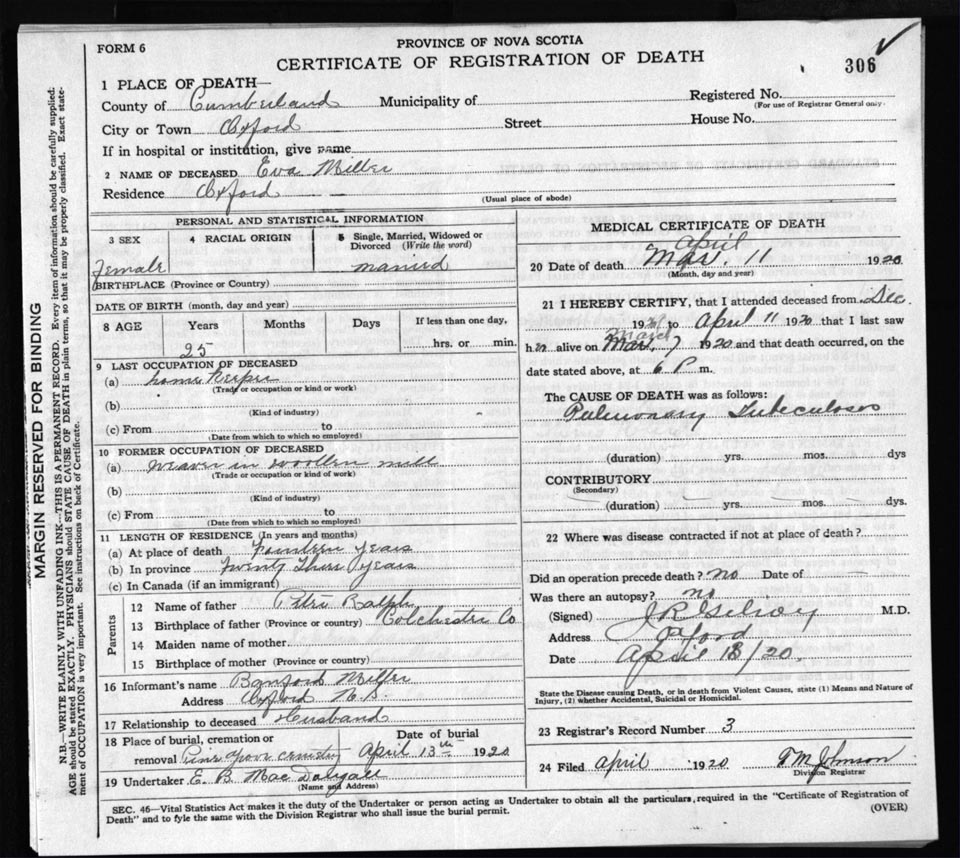 FORM 6
PROVINCE OF NOVA SCOTIA
CERTIFICATE OF REGISTRATION OF DEATH
306
1 PLACE OF DEATH—
County of Cumberland Municipality of Registered No.
(For use of Registrar General only.
City or Town Oxford Street House No.
If in hospital or institution, give name
2 NAME OF DECEASED Eva Miller
Residence Oxford
(Usual place of abode)
PERSONAL AND STATISTICAL INFORMATION
3 SEX 4 RACIAL ORIGIN 5 Single, Married, Widowed or Divorced (Write the word)
Female married
BIRTHPLACE (Province or Country)
DATE OF BIRTH (month, day and year)
8 AGE Years Months Days If less than one day,
hrs. or min.
25
9 LAST OCCUPATION OF DECEASED
(a) home keeper
(Trade or occupation or kind or work)
(b)
(Kind of industry)
(c) From to
(Date from which to which so employed)
10 FORMER OCCUPATION OF DECEASED
(a) weaver in woollen mill
(Trade or occupation or kind of work)
(b)
(Kind of industry)
(c) From to
(Date from which to which so employed)
11 LENGTH OF RESIDENCE (In years and months)
(a) At place of death fourteen years
(b) In province twenty three years
(c) In Canada (if an immigrant)
Parents
12 Name of father Ralph
13 Birthplace of father (Province or country) Colchester Co
14 Maiden name of mother
15 Birthplace of mother (Province or country)
16 Informant's name Banford Miller
Address Oxford N.S.
17 Relationship to deceased Husband
18 Place of burial, cremation or removal Date of burial
cemetery April 13th 1920
19 Undertaker E. B. Mac
(Name and Address)
MEDICAL CERTIFICATE OF DEATH
April
20 Date of death Mar. 11 1920
(Month, day and year)
21 I HEREBY CERTIFY, that I attended deceased from Dec.
19 to April 11 1920 that I last saw
March
h alive on Mar. 7 1920 and that death occurred, on the
date stated above, at 6 P m.
The CAUSE OF DEATH was as follows:
Pulmonary Tuberculoses
(duration) yrs. mos. dys
CONTRIBUTORY
(Secondary)
(duration) yrs. mos. dys.
22 Where was disease contracted if not at place of death?
Did an operation precede death? no Date of
Was there an autopsy? no
(Signed) M.D.
Address Oxford
Date April 18/20.
State the Disease causing Death, or in death from Violent Causes, state (1) Means and Nature of
Injury, (2) whether Accidental, Suicidal or Homicidal.
23 Registrar's Record Number 3
24 Filed April 1920 Johnson
Division Registrar
SEC. 46—Vital Statistics Act makes it the duty of the Undertaker or person acting as Undertaker to obtain all the particulars, required in the "Certificate of Registration of
Death" and to fyle the same with the Division Registrar who shall issue the burial permit.
(OVER)
MARGIN RESERVED FOR BINDING
N.B.—WRITE PLAINLY WITH UNFADING INK—THIS IS A PERMANENT RECORD. Every item of information should be carefully supplied;
AGE should be stated EXACTLY. PHYSICIANS should STATE CAUSE OF DEATH in plain terms, so that it may be properly classified. Exact state-
ment of OCCUPATION is very important. See instructions on back of Certificate.